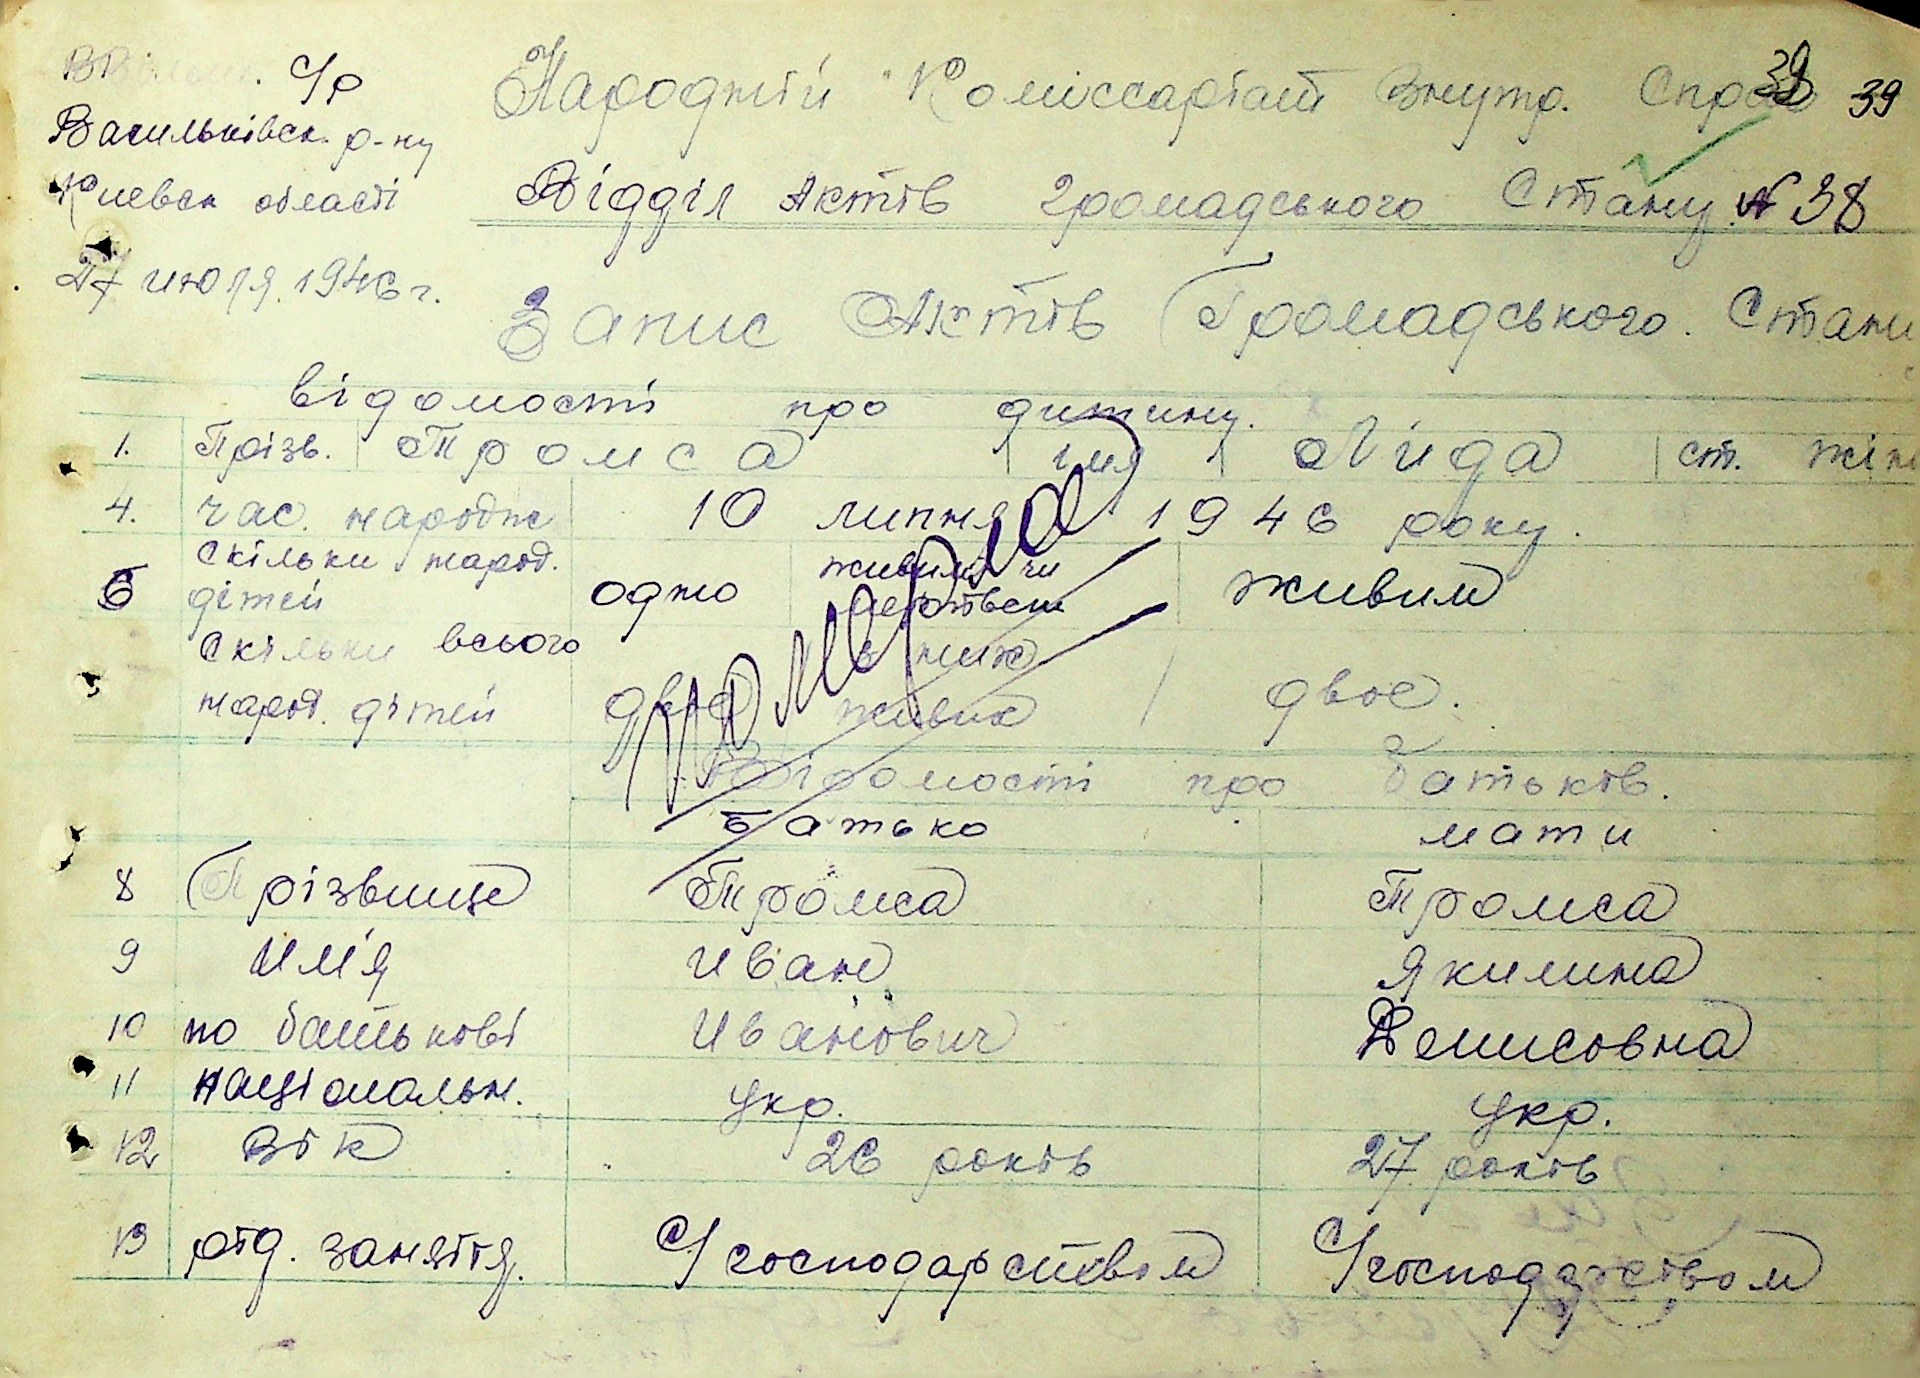 С/р
Васильківск. р-ну
Киевск области
27 июля 1946 г.
Народній Коміссаріат Внутр. Справ 39
Відділ Актів громадського Стану № 38
Запис Актів Громадського. Стану
відомості про дитину.
1. Прізв. Тромса імя Лида ст. жін
4. час. народж 10 липня 1946 року.
6 скільки народ. дітей одно живим чи мертвем живим
скільки всього народ. дітей двое з них живих двое.
померла
Відомості про батьків.
батько мати
8 Прізвище Тромса Тромса
9 Им'я Иван Якилина
10 по батькові Иванович Денисовна
11 національн. укр. укр.
12 Вік 26 років 27 років
13 рід. заняття. С/господарством С/господарством